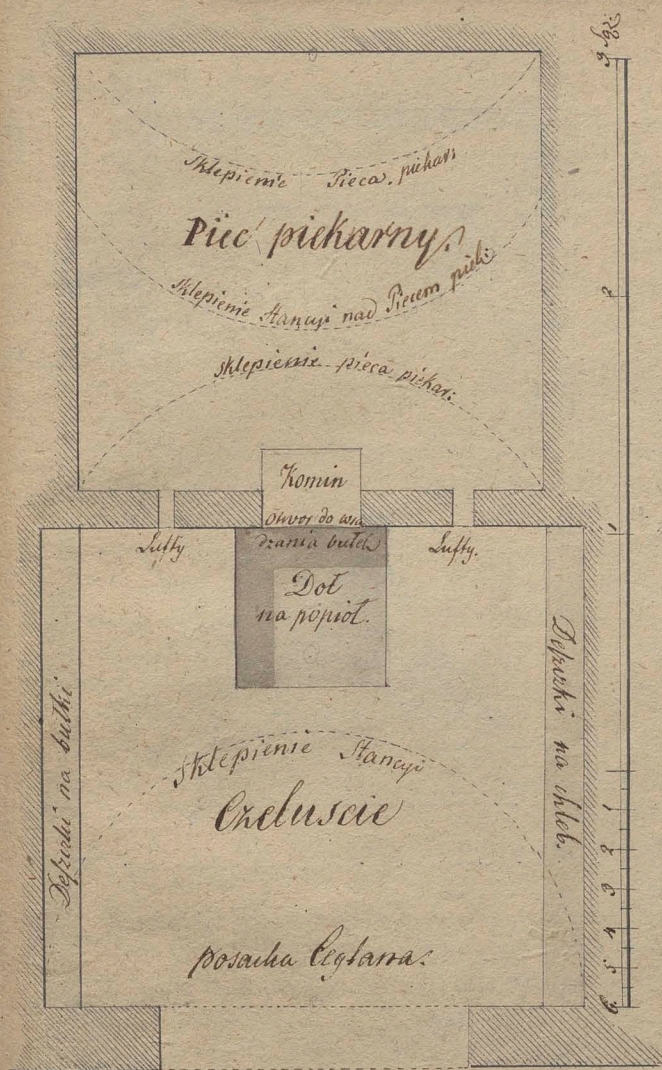 Sklepienie Pieca piekar:
Piec piekarny.
Sklepienie Stancyi nad Piecem piek:
sklepienie pieca piekar:
Komin
Otwor do wsa
dzania bułek
Lufty
Lufty.
Doł
na popioł.
Deszczki na bułki
Deszczki na chleb.
Sklepienie Stancyi
Czeluscie
posacka Ceglana.
2
1
1
2
3
4
5
6